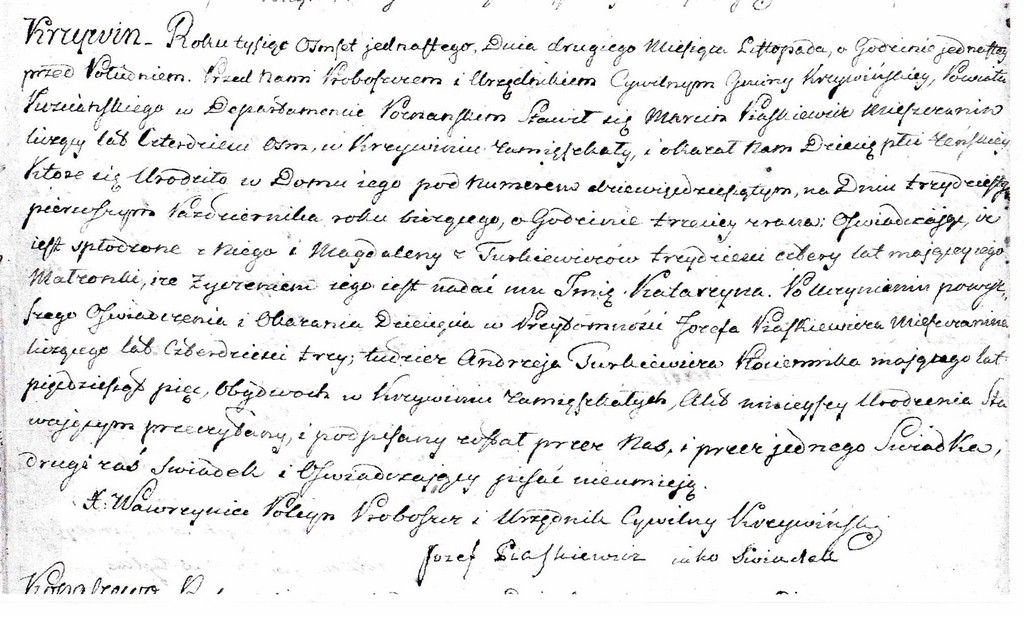 Krzywin – Roku tysiąc osmset jednastego, Dnia drugiego Miesiąca Listopada, o Godzinie jednastey
przed Południem. Przed Nami Proboszczem i Urzędnikiem Cywilnym Gminy Krzywińskiey, Powiatu
Kościańskiego w Departamencie Poznańskim Stawił się Marcin Piaskiewicz Mieszczanin
liczący lat Czterdzieści osm, w Krzywiniu zamięszkały, i okazał Nam Dziecię płci Żeńskiey
które się Urodziło w Domu iego pod Numerem dziewięćdziesiątym, na Dniu trzydziestym
pierwszym Października roku bieżącego, o Godzinie trzeciey z rana; Oświadczając, iż
iest spłodzone z Niego i Magdaleny z Turkiewiczów trzydzieści cztery lat maiącey iego
Małżonki, i że Życzeniem iego iest nadać mu Imię Katarzyna. Po Uczynieniu powyż,
szego Oświadczenia i Okazania Dziecięcia w Przytomności Jozefa Piaskiewicza Mieszczanina
liczącego lat Czterdzieści trzy; tudzież Andrzeja Turkiewicza maiącego lat
pięćdziesiąt pięć, Obydwoch w Krzywiniu zamięszkałych, Akt ninieyszy Urodzenia Sta
waiącym przeczytany, i podpisany został przez Nas, i przez jednego Swiadka,
drugi zaś Swiadek i Oświadczaiący pisać nieumieią.
X: Wawrzyniec Proboszcz i Urzędnik Cywilny Krzywiński
Jozef Piaskiewicz iako Swiadek